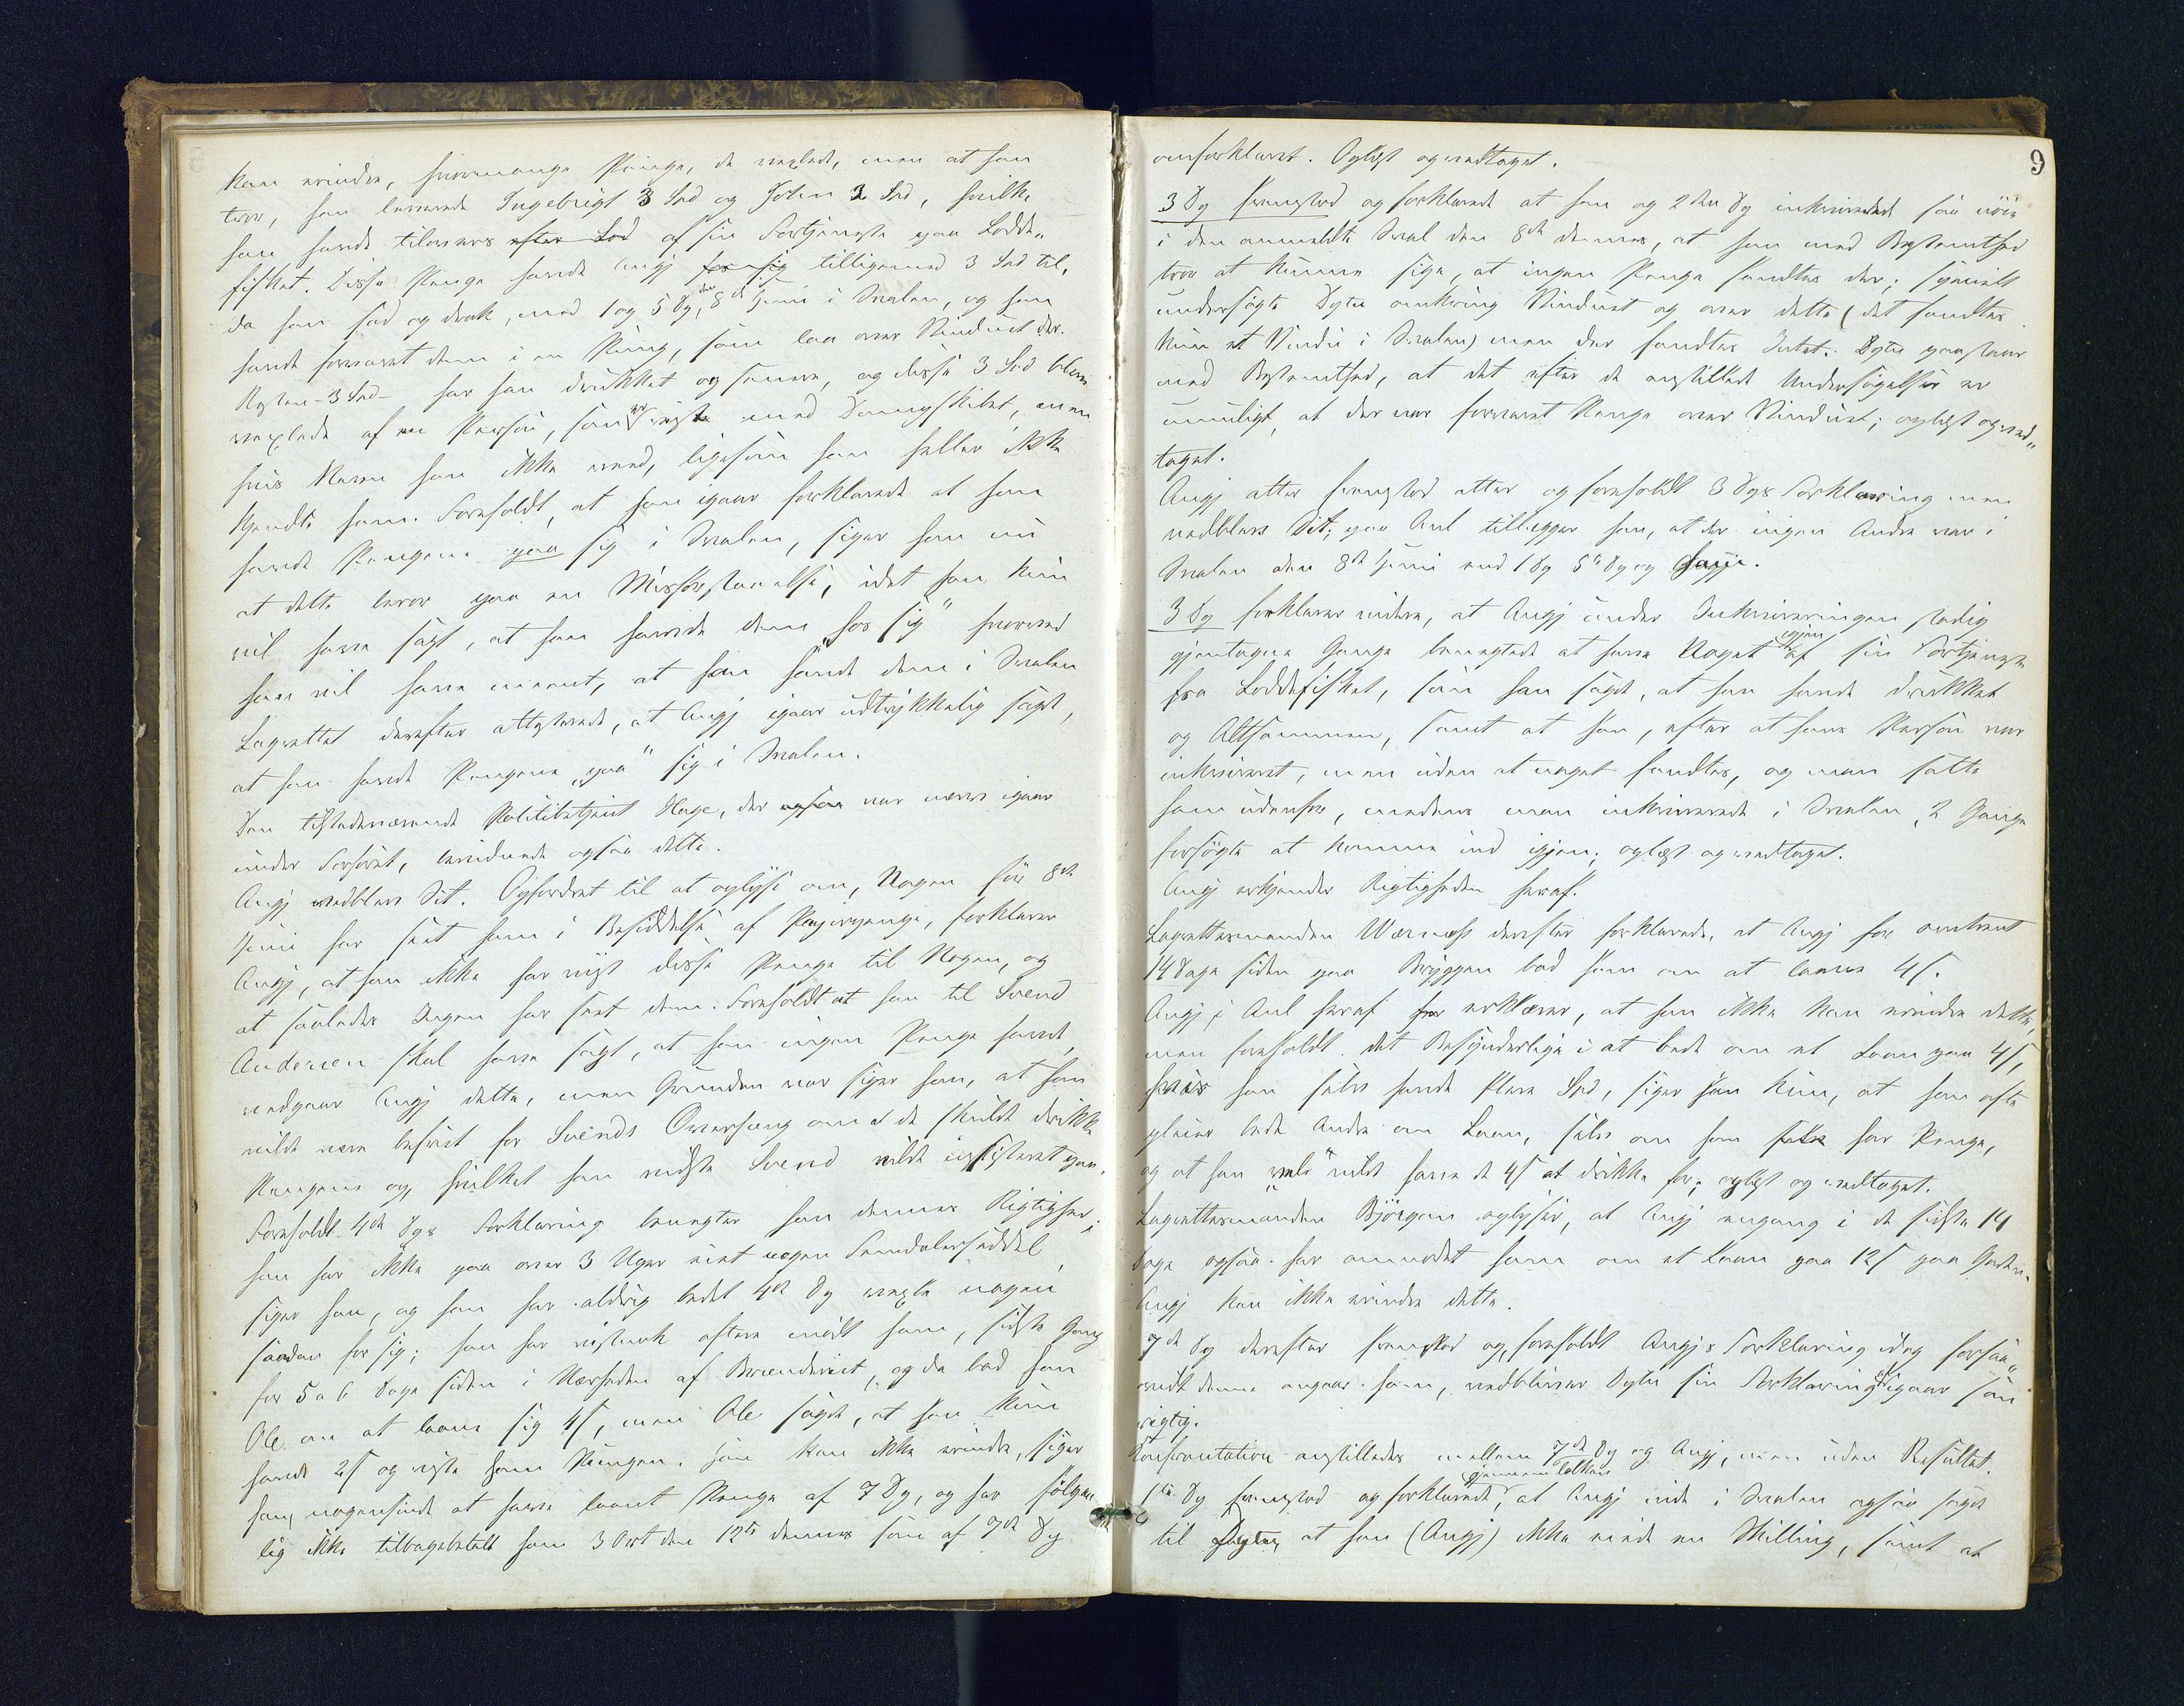 kan erindre, hvormange Penge, de vexlede, men at han
tror, han leverede Ingebrigt 3 Spd og John 2 Spd, hvilke
han havde tilovers efter Lod af sin Fortjeneste paa Lodde-
fisket. Disse Penge havde Angj hos sig tilligemed 3 Spd til,
da han sad og drak, med 1 og 5 Dg, den 8de Juni i Svalen, og han
havde forvaret dem i en Pung, som laa over Vinduet der.
Resten - 3 Spd - har han drukket op senere, og disse 3 Spd bleve
vexlede af en Person, som er reist med Dampskibet, men
hvis Navn han ikke veed, ligesom han heller ikke
kjendte ham. Foreholdt, at han igaar forklarede at han
havde Pengene paa sig i Svalen, siger han nu
at dette beror paa en Misforstaaelse, idet han kun
vil have sagt, at han havde dem "hos sig" hvorved
han vil have meent, at han havde dem i Svalen
Lagrettet derefter attesterede, at Angj igaar udtrykkelig sagde,
at han havde Pengene "paa" sig i Svalen.
Den tilstedeværende Politibetjent Hage, der ogsaa var nærv igaar
under Forhøret, bevidnede ogsaa dette.
Angj vedblev Sit. Opfordret til at oplyse om, Nogen før 8de
Juni har seet ham i Besiddelse af Papirpenge, forklarer
Angj, at han ikke har viist disse Penge til Nogen, og
at saaledes Ingen har seet dem. Foreholdt at han til Svend
Andersen skal have sagt, at han ingen Penge havde,
vedgaar Angj dette, men Grunden var siger han, at han
vilde være befriet for Svends Overhæng om at de skulde drikke
Pengene op, hvilket han vidste Svend vilde insisteret paa.
Foreholdt 4de Dgs Forklaring benegter han dennes Rigtighed;
han har ikke paa over 3 Uger eiet nogen Femdalerseddel,
siger han, og han har aldrig bedet 4de Dg vexle nogen
saadan for sig; han har vistnok oftere mødt ham, sidste Gang
for 5 a 6 Dage siden i Nærheden af Brændeviet, og da bad han
Ole om at laane sig 4 ß, men Ole sagde, at han kun
havde 2 ß og viste ham Pungen. Han kan ikke erindre, siger
han, nogensinde at have laant Penge af 7 Dg, og har følge-
lig ikke tilbagebetalt ham 3 Ort den 12te dennes som af 7de Dg
9
omforklaret. Oplæst og vedtaget.
3 Dg fremstod og forklarede at han og 2den Dg inkvirerede saa nøie
i den anmeldte Sval den 8de dennes, at han med Bestemthed
tror at kunne sige, at ingen Penge fandtes der; specielt
undersøgte Dptn omkring Vinduet og over dette (det fandtes
kun et Vindu i Svalen) men der fandtes Intet. Dptn paastaar
med Bestemthed, at det efter de anstillede Undersøgelser er
umuligt, at der var forvaret Penge over Vinduet; oplæst og ved-
taget.
Angj atter fremstod atter og foreholdt 3 Dgs Forklaring men
vedblev Sit; paa Anl tillægger han, at der ingen Andre var i
Svalen den 8de Juni end 1 Dg 5te Dg og Angj.
3 Dg forklarer videre, at Angj under Inkvireringen stadig
gjentagne Gange benegtede at have Noget igjen af sin Fortjeneste
fra Loddefisket, som han sagde, at han havde drukket
op Altsammen, samt at han, efter at hans Person var
inkvireret, men uden at noget fandtes, og man satte
ham udenfor, medens man inkvirerede i Svalen, 2 Gange
forsøgte at komme ind igjen; oplæst og vedtaget.
Angj erkjender Rigtigheden heraf.
Lagrettesmanden Wærnæss derefter forklarede, at Angj for omtrent
14 Dage siden paa Bryggen bad ham om at laane 4 ß.
Angj i Anl heraf for erklærer, at han ikke kan erindre dette,
men foreholdt det Besynderlige i at bede om et Laan paa 4 ß,
hvis han selv havde flere Spd, siger han kun, at han ofte
pleier bede Andre om Laan, selv om han selv har Penge,
og at han vel vilde have de 4 ß at drikke for; oplæst og vedtaget.
Lagrettesmanden Björgen oplyser, at Angj engang i de sidste 14
Dage ogsaa har anmodet ham om et Laan paa 12 ß paa Gaden.
Angj kan ikke erindre dette.
7de Dg derefter fremstod og, foreholdt Angjs Forklaring idag forsaa-
vidt denne angaar ham, vedbliver Dptn sin Forklaring af igaar som
rigtig.
Konfrontation anstilledes mellem 7de Dg og Angj, men uden Resultat.
1ste Dg fremstod og forklarede gjennem Tolken, at Angj inde i Svalen ogsaa sagde
til Dptn, at han (Angj) ikke eiede en Skilling, samt at